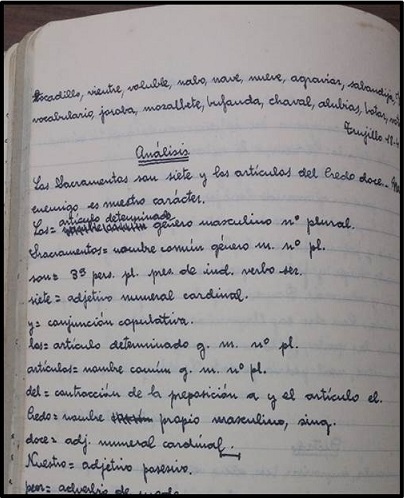 Bocadillo, vientre, voluble, nabo, nave, nueve, agraviar, sabandija,
vocabulario, joroba, mozalbete, bufanda, chaval, alubias, botar,
Trujillo 18-
Análisis
Los Sacramentos son siete y los artículos del Credo doce.-
enemigo es nuestro carácter.
Los= artículo determinado género masculino nº plural.
Sacramentos= nombre común género m. nº pl.
son= 3ª pers. pl. pres. de ind. verbo ser.
siete= adjetivo numeral cardinal.
y= conjunción copulativa.
los= artículo determinado g. m. nº pl.
artículos= nombre común g. m. nº pl.
del= contracción de la preposición a y el artículo el.
Credo= nombre propio masculino, sing.
doce= adj. numeral cardinal.
Nuestro= adjetivo posesivo.
peor= adverbio de modo